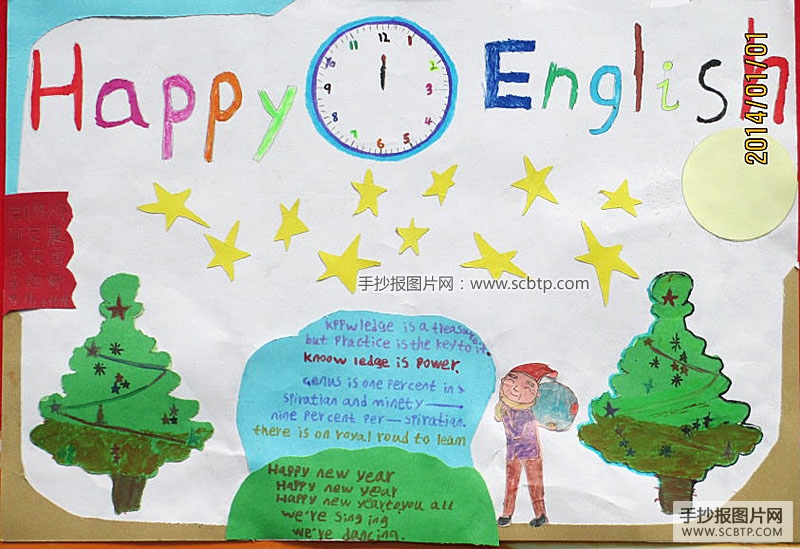 Happy English
11 12 1
10 2
9 3
8 4
7 6 5
2014/01/01
手抄报图片网：www.scbtp.com
knowledge is a treasure
but Practice is the key to it.
knoow ledge is power.
Genus is one percent in
spiration and minety——
nine percent per—spiration.
there is on royal roud to lean
Happy new year
Happy new year
Happy new year to you all
we're singing
we're dancing.
手抄报图片网
WWW.SCBTP.COM